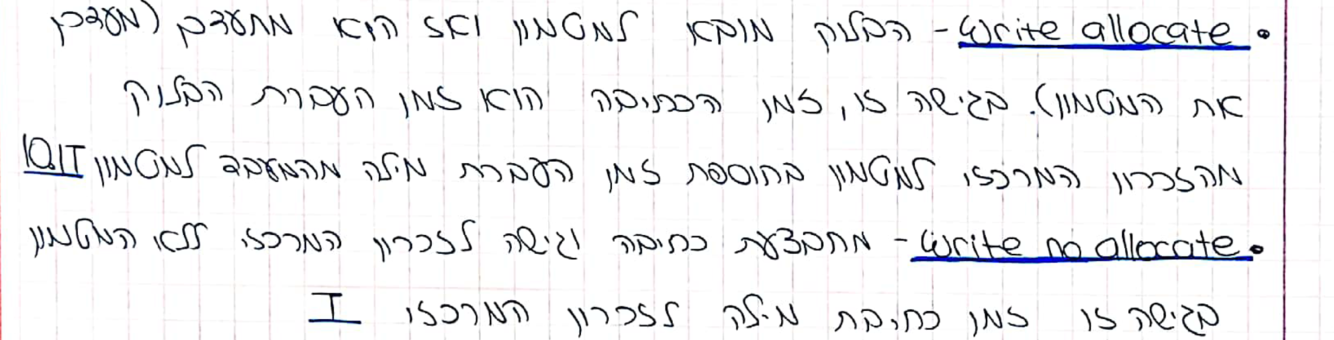 • Write allocate - הבלוק מובא למטמון ואז הוא מתעדכן (מעדכן
את המטמון). בגישה זו, זמן הכתיבה הוא זמן העברת הבלוק
מהזכרון המרכזי למטמון בתוספת זמן העברת מילה מהמעבד למטמון
• Write no allocate - מתבצעת כתיבה וגישה לזכרון המרכזי ללא המטמון
בגישה זו זמן כתיבת מילה לזכרון המרכזי T